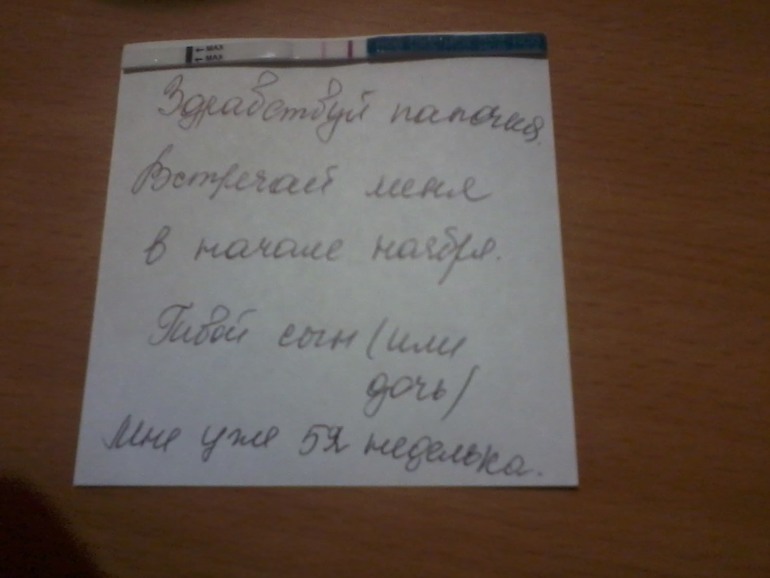 ← MAX
← MAX
Здравствуй папочка.
Встречай меня
в начале ноября.
Твой сын (или
дочь)
Мне уже 5я неделька.